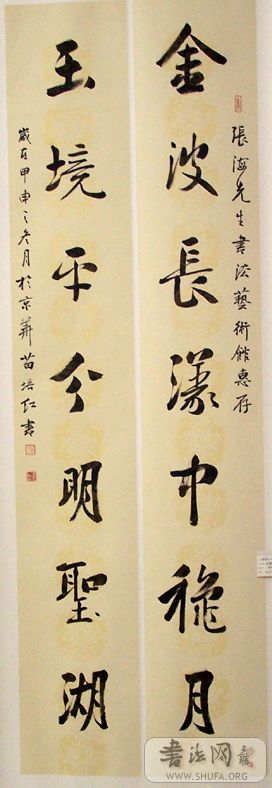 張海先生書法藝術館惠存
金波長漾中穐月
玉境平分明聖湖
歲在甲申之冬月於京華苗培红書
書法网
WWW.SHUFA.ORG